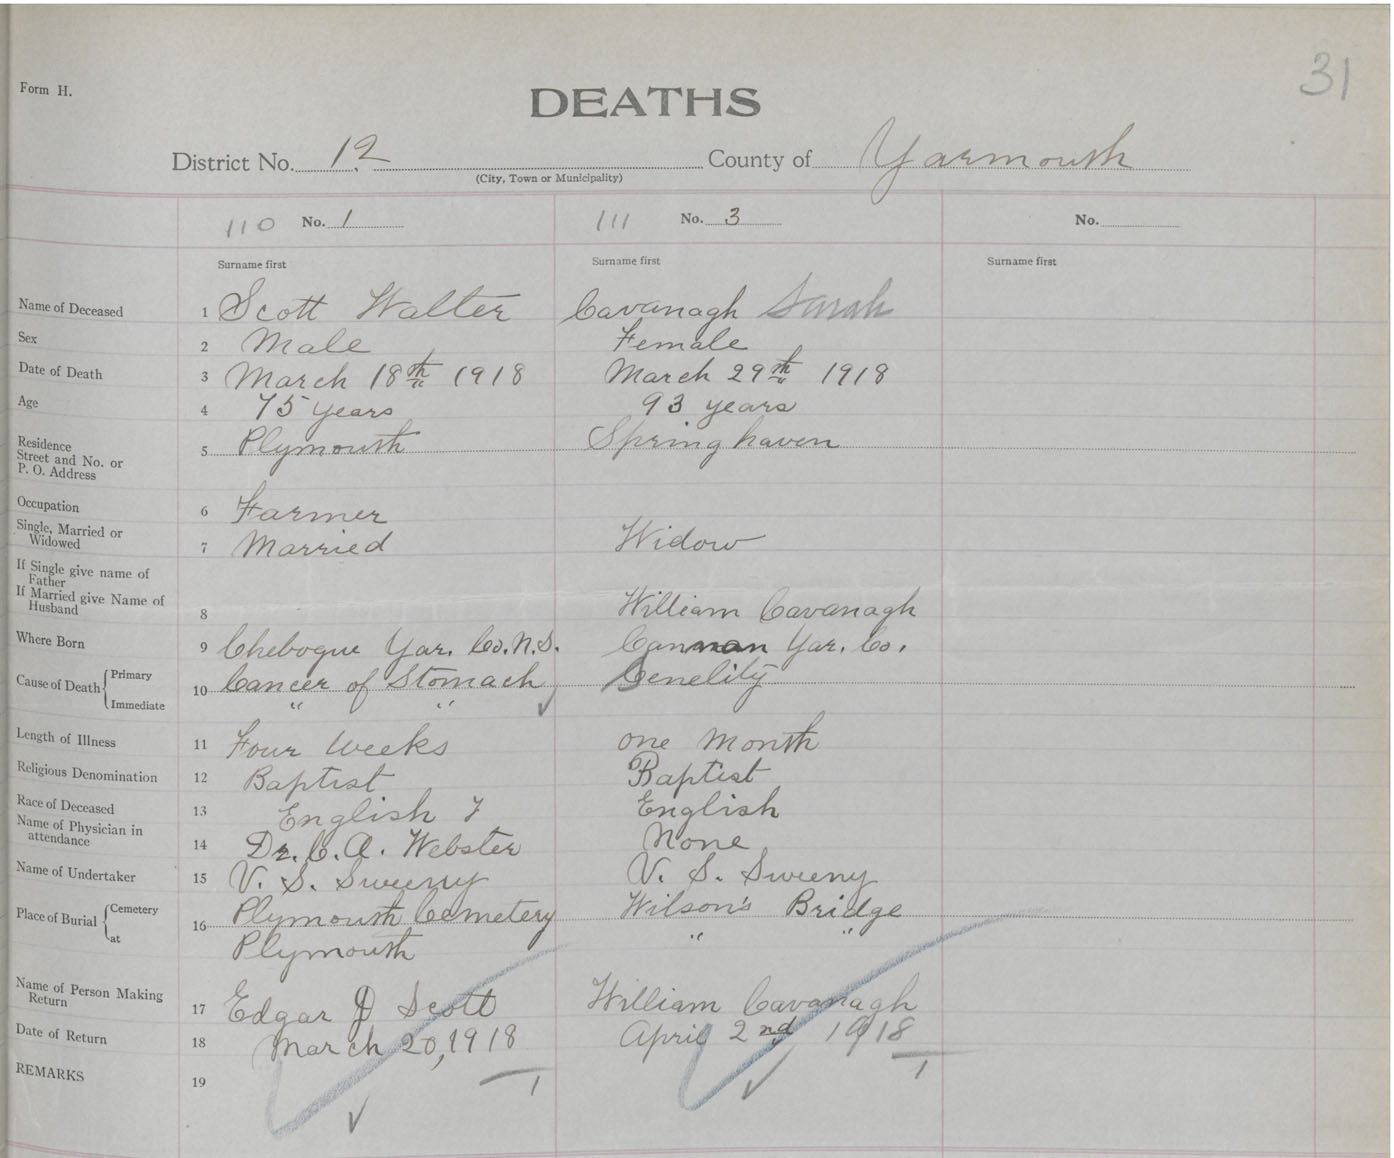 31
Form H.
DEATHS
District No. 12 County of Yarmouth
(City, Town or Municipality)
110 No. 1 111 No. 3 No.
Surname first Surname first Surname first
Name of Deceased 1 Scott Walter Cavanagh Sarah
Sex 2 Male Female
Date of Death 3 March 18th 1918 March 29th 1918
Age 4 75 years 93 years
Residence
Street and No. or
P. O. Address 5 Plymouth Springhaven
Occupation 6 Farmer
Single, Married or
Widowed 7 Married Widow
If Single give name of
Father
If Married give Name of
Husband 8 William Cavanagh
Where Born 9 Chebogue Yar. Co. N.S. Cannan Yar. Co.
Cause of Death Primary 10 Cancer of Stomach Senelity
Immediate " "
Length of Illness 11 Four Weeks one Month
Religious Denomination 12 Baptist Baptist
Race of Deceased 13 English English
Name of Physician in
attendance 14 Dr. C. A. Webster None
Name of Undertaker 15 V. S. Sweeny V. S. Sweeny
Place of Burial Cemetery 16 Plymouth Cemetery Wilson's Bridge
at Plymouth " "
Name of Person Making
Return 17 Edgar J Scott William Cavanagh
Date of Return 18 March 20, 1918 April 2nd 1918
REMARKS 19